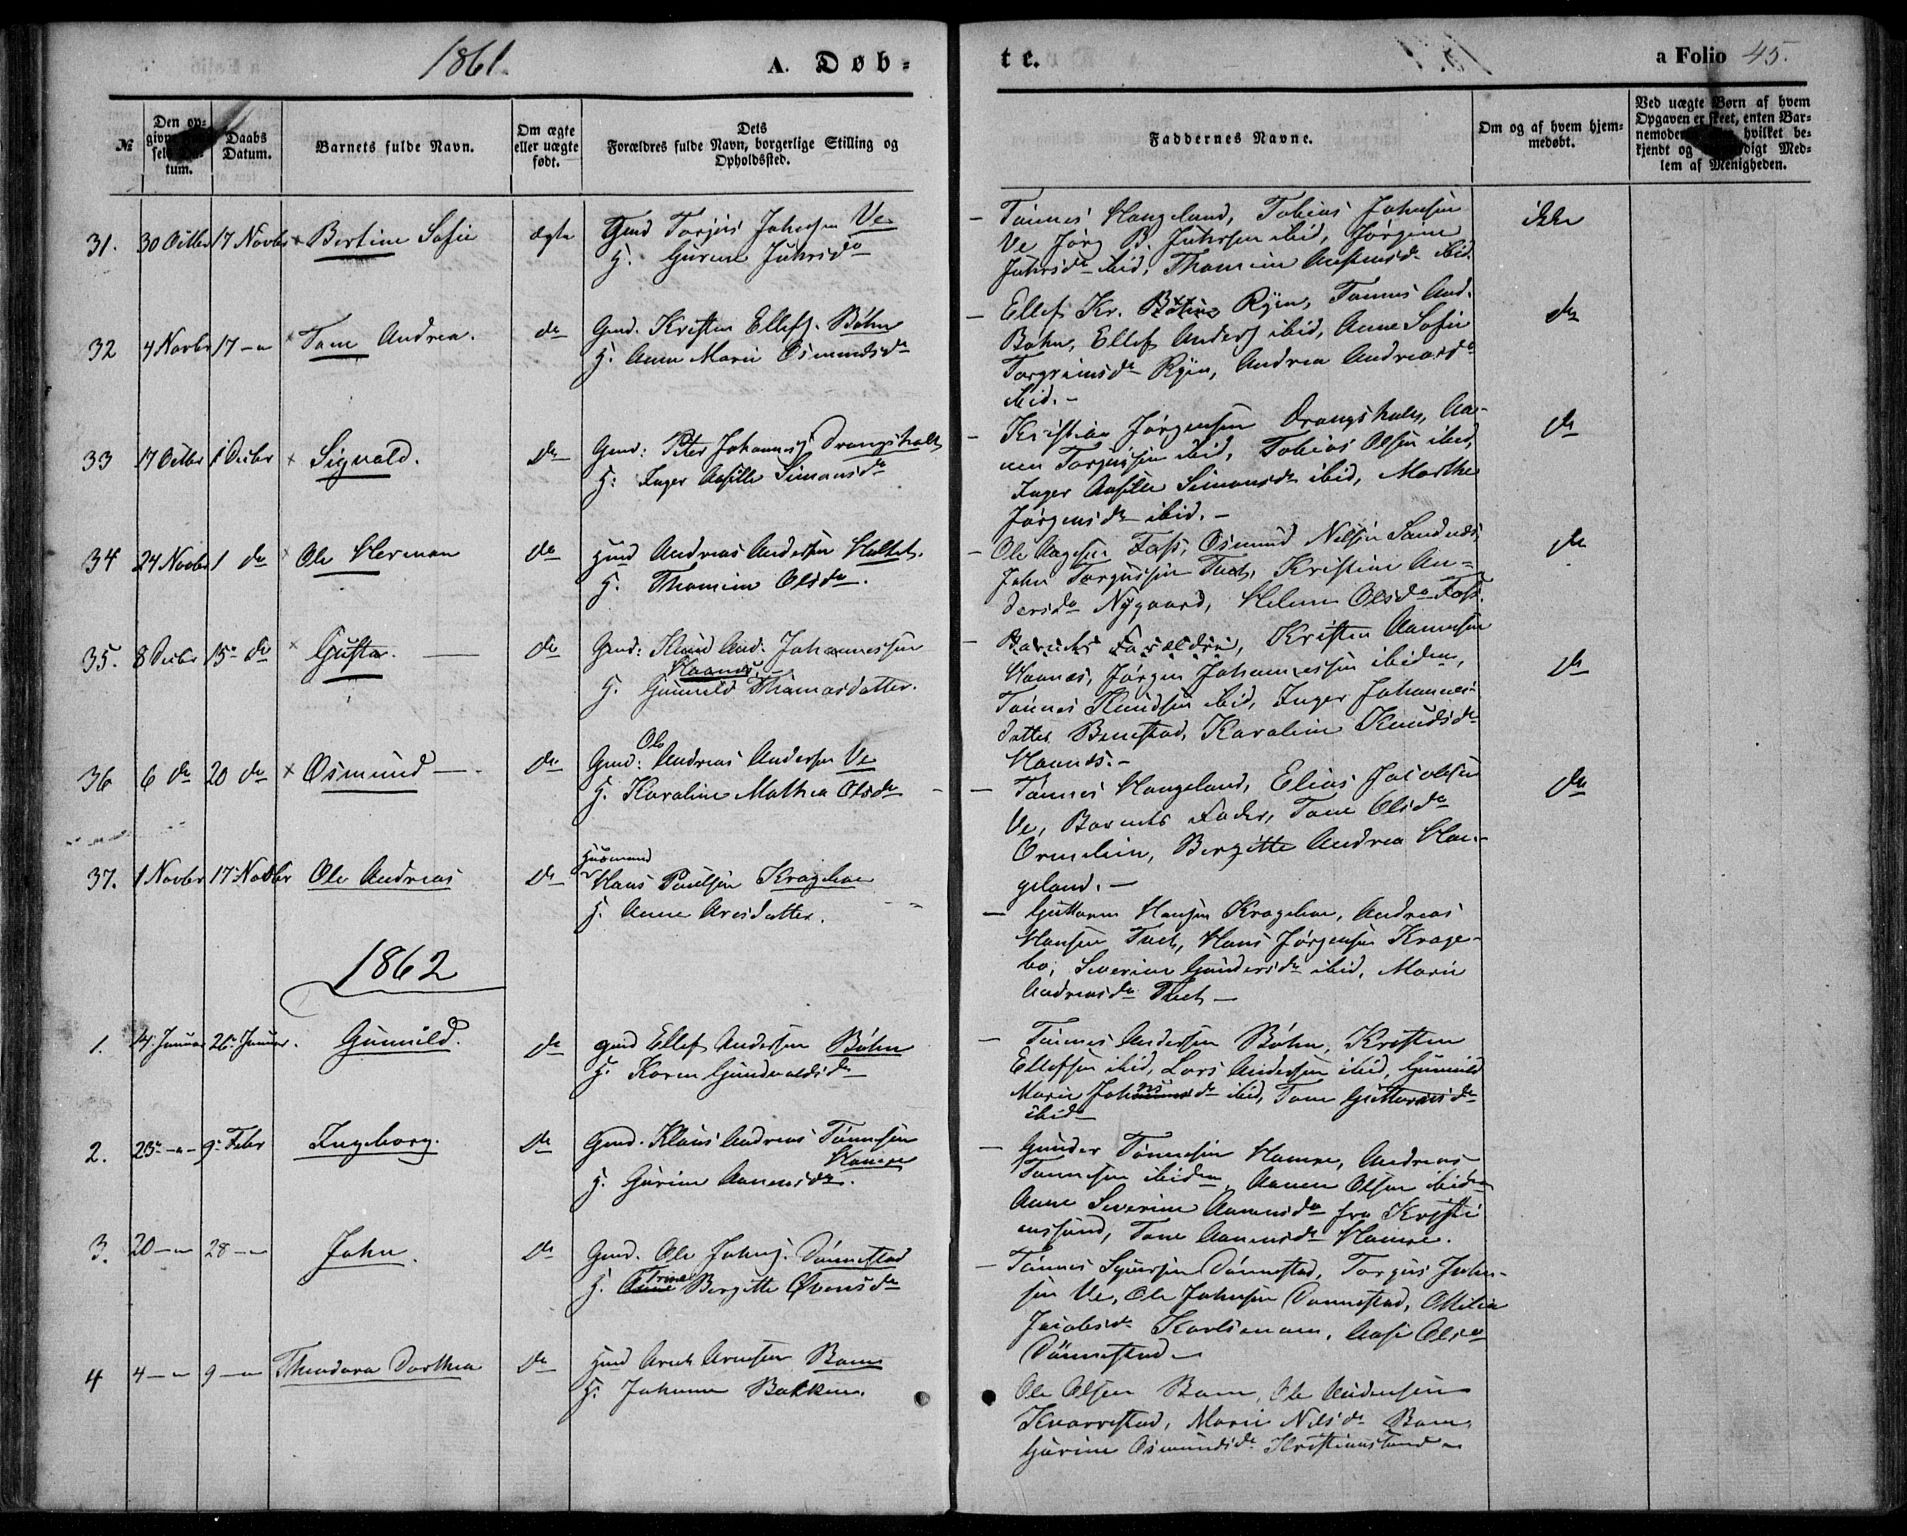 1861.
A. Døb-
te.
a Folio 45.
№
Den op-
tum.
Daabs
Datum.
Barnets fulde Navn.
Om ægte
eller uægte
født.
Dets
Forældres fulde Navn, borgerlige Stilling og
Opholdssted.
Faddernes Navne.
Om og af hvem hjem-
medøbt.
Ved uægte Børn af hvem
Opgaven er skeet, enten Bar-
nemoderen hvilket be-
kjendt og Med-
lem af Menigheden.
31. 30 Octbr 17 Novbr Bertine Sofie ægte
Gmd Torjus Johnsen Ve
H. Gurine Juhrsda
Tönnes Haugeland, Tobias Johnsen
Ve Jörg B. Juhrsen ibid, Jörgine
Juhrsda ibid, Thomine ibid.
ikke
32 4 Novbr 17 Tone Andrea. do
Gmd. Kristen Ellefs. Böhn
H. Anne Marie Osmundsda
Ellef Kr. Ryen, Tönnes And.
Bøhn, Ellef Anders ibid, Anne Sofie
Torgrimsda Ryen, Andrea Andreasda
ibid.-
do
33 17 Octbr 1 Decbr Sigvald. do
Gmd: Peter Johannes Drangsholt
H. Inger Aasille Simonsda
Kristian Jörgensen Drangsholt, Aa-
nen Torjussen ibid, Tobias Olsen ibid,
Inger Aasille Simonsda ibid, Marthe
Jörgensda ibid.-
do
34 24 Novbr 1 do Ole Herman do
Andreas Andersen Holtet.
H. Thomine Olsda.
Ole Aagesen Foss, Osmund Nilsen Sandnes,
John Torgussen Tveit, Kristine An-
dersda Nygaard, Helene Olsda Foss.
do
35. 8 Decbr 15 do Gusta. do
Gmd: Knud And. Johannessen
Haanes,
H. Gunnild Thomasdatter.
Barnets Forældre, Kristen Aanensen
Haanes, Jörgen Johannessen ibidem,
Tönnes Knudsen ibid, Inger Johannes-
datter Benestad, Karoline Knudsda
Haanes.-
do
36 6 do 20 do Osmund do
Gmd: Ole Andreas Andersen Ve
H. Karoline Mathea Olsda
Tönnes Haugeland, Elias Jacobsen
Ve, Barnets Fader, Tone Olsda
Ormelien, Bergitte Andrea Hau-
geland.-
do
37. 1 Novbr 17 Novbr Ole Andreas do
Husmand
Hans Poulsen Kragebo
H. Anne Arosdatter.
Guttorm Hansen Kragebo, Andreas
Hansen Tveit, Hans Jörgensen Krage-
bo, Severine Gundersda ibid, Marie
Andreasda Tveit
1862
1. Januar 26 Januar. Gunnild. do
gmd Ellef Andersen Böhn
H. Karen Gundvaldsda
Tönnes Andersen Böhn, Kristen
Ellefsen ibid, Lars Andersen ibid, Gunnild
Marie ibid, Tone Guttormsda
ibid
2. 25 9 Febr Ingeborg. do
Gmd. Klaus Andreas Tönnesen
Hamre
H. Gurine Aanensda.
Gunder Tönnesen Hamre, Andreas
Tönnesen ibidem, Aanen Olsen ibidem
Anne Severine Aanensda fra Kristi-
ansand, Tone Aanensda Hamre.
3. 20 28 John. do
Gmd. Ole Johns. Dönnestad
H. Trine Bergitte Øvensda
Tönnes Syversen Dönnestad, Torgus John-
sen Ve, Ole Johnsen Dönnestad, Ottilia
Jacobsda Aase Olsda
Dönnestad
4 4 9 Theodora Dorthea do
Arnt Arntsen Boen
H. Johanne Bakken.
Ole Olsen Boen, Ole Andersen
Knarrestad, Marie Nilsda Boen,
Gurine Osmundsda Kristiansand